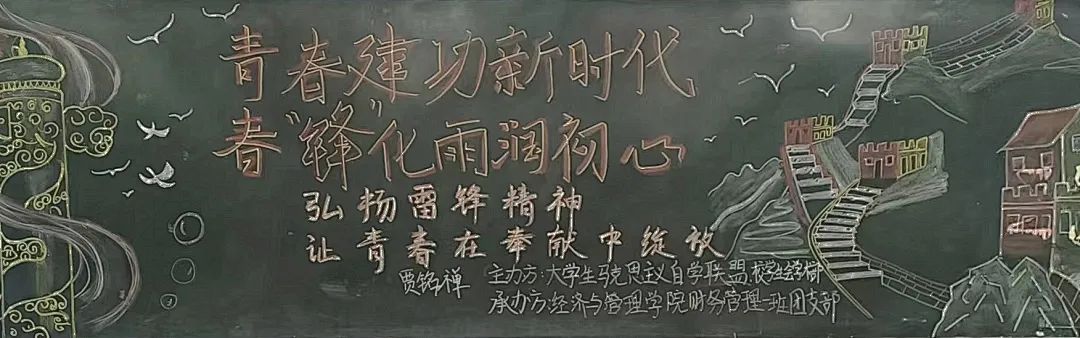 青春建功新时代
春"锋"化雨润初心
弘扬雷锋精神
让青春在奉献中绽放
贾铭禅
主力方:大学生马克思主义自学联盟,校学生会
承办方:经济与管理学院财务管理一班团支部